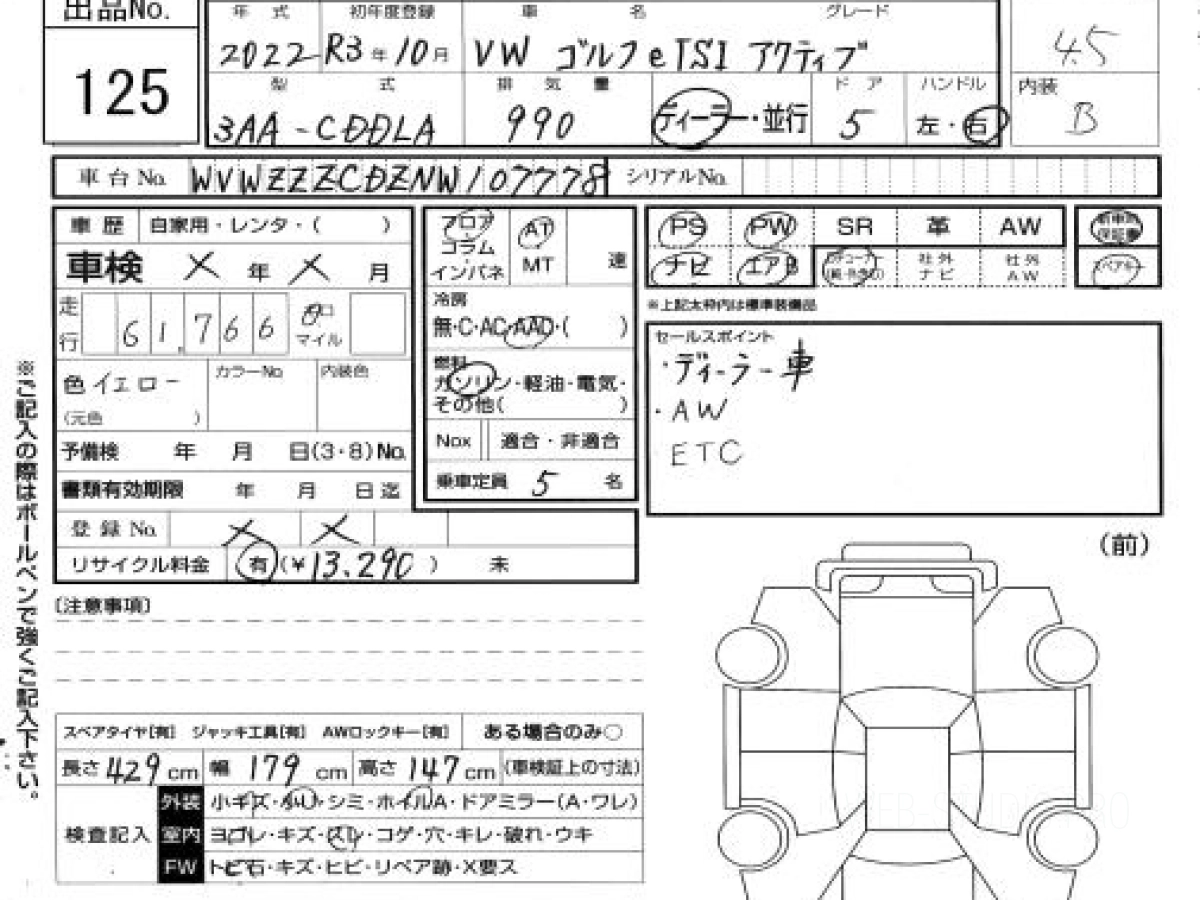 出品No.
125
年式 初年度登録 車名 グレード
2022 R3年10月 VW ゴルフ eTSI アクティブ
4.5
型式 排気量 ドア ハンドル
3AA-CDDLA 990 ディーラー・並行 5 左・右
内装
B
車台No. WVWZZZCDZNW107778 シリアルNo.
車歴 自家用・レンタ・( )
車検 × 年 × 月
走行 61,766 キロ マイル
色 イエロー カラーNo 内装色
(元色 )
予備検 年 月 日(3・8)No.
書類有効期限 年 月 日迄
登録No. × ×
リサイクル料金 有(¥13.290) 未
フロア コラム インパネ
AT MT 速
冷房
無・C・AC・AAC・( )
燃料
ガソリン・軽油・電気・
その他( )
Nox 適合・非適合
乗車定員 5 名
PS PW SR 革 AW 新車時保証書
ナビ エアB 社外ナビ 社外AW スペアキー
※上記太枠内は標準装備品
セールスポイント
・ディーラー車
・AW
ETC
※ご記入の際はボールペンで強くご記入下さい。
(注意事項)
(前)
スペアタイヤ[有] ジャッキ工具[有] AWロックキー[有] ある場合のみ○
長さ429cm 幅179cm 高さ147cm (車検証上の寸法)
検査記入
外装 小キズ・小凹・シミ・ホイルA・ドアミラー(A・ワレ)
室内 ヨゴレ・キズ・スレ・コゲ・穴・キレ・破れ・ウキ
FW トビ石・キズ・ヒビ・リペア跡・X要ス